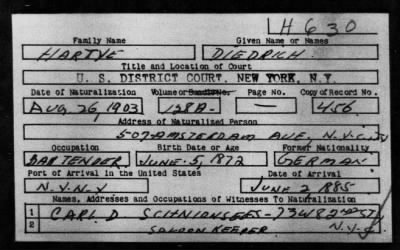 H630
Family Name Given Name or Names
HARTJE DIEDRICH
Title and Location of Court
U. S. DISTRICT COURT, NEW YORK, N.Y.
Date of Naturalization Volume or Bundle No. Page No. Copy of Record No.
AUG. 26, 1903 128A- — 456
Address of Naturalized Person
507 AMSTERDAM AVE, N.Y. CITY
Occupation Birth Date or Age Former Nationality
BARTENDER JUNE. 5, 1872 GERMAN
Port of Arrival in the United States Date of Arrival
N.Y. N.Y JUNE 2 1885
Names, Addresses and Occupations of Witnesses To Naturalization
1 CARL D
2 SALOON KEEPER N.Y.